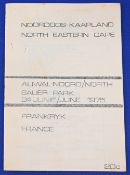 NOORDOOS-KAAPLAND
NORTH EASTERN CAPE
ALIWAL NOORD/NORTH
SAUER PARK
24 JUNIE/JUNE 1975
FRANKRYK
FRANCE
20c